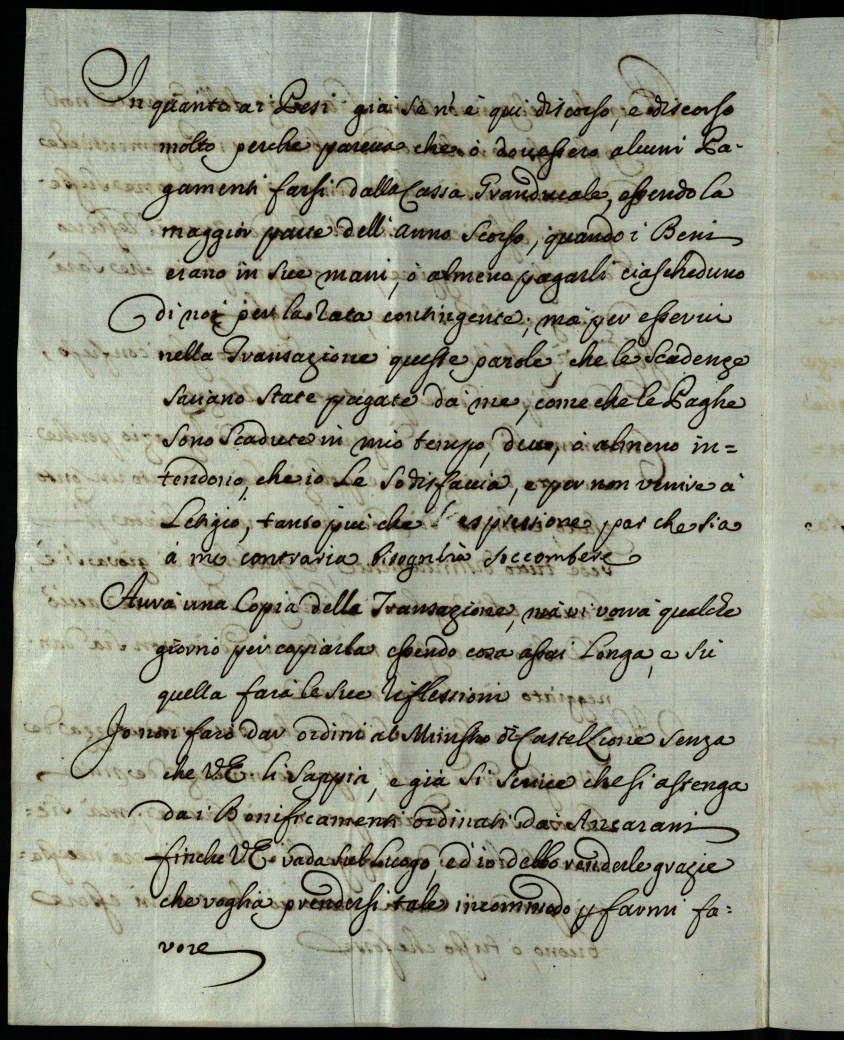 In quanto ai Pesi già se n'è qui discorso, e discorso
molto perche pareua che ò douessero alcuni Pa-
gamenti farsi dalla Cassa Granducale, essendo la
maggior parte dell'anno scorso, quando i Beni
erano in sue mani, ò almeno pagarli ciascheduno
di noi per la rata contingente; mà per esserui
nella Transazione queste parole, che le Scadenze
saranno state pagate da me, come che le Paghe
sono Scadute in mio tempo, deuo, ò almeno in=
tendono, che io Le Sodisfaccia, e per non venire à
Letigio, tanto piu che l'espressione par che sia
à me contraria bisognerà soccombere
Aurà una Copia della Transazione, mà vi vorrà qualche
giorno per copiarla essendo cosa assai Longa, e su
quella farà le sue riflessioni
Io non farò dar ordini al Ministro di Castellione senza
che V.E. li sappia, e già si scriue che si astenga
dai Bonificamenti ordinati dai Ancarani
finche V.E. vada sul Luogo, ed io debbo renderle grazie
che voglia prendersi tale incommodo p farmi fa=
vore